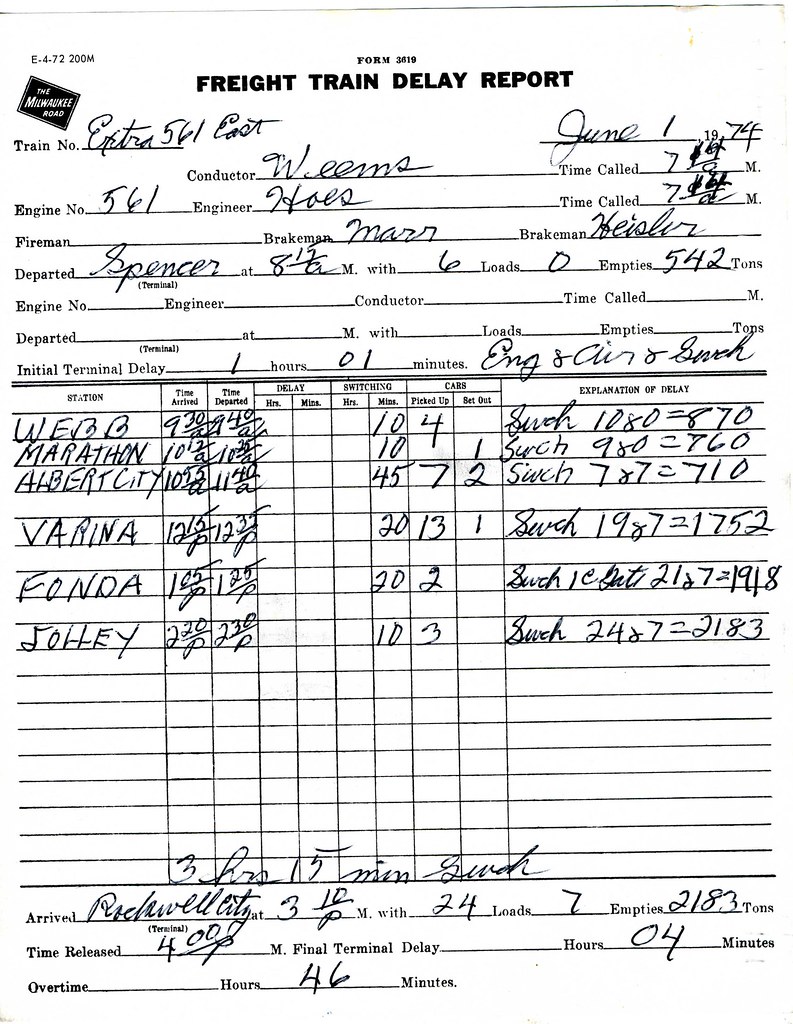 E-4-72 200M
FORM 3619
FREIGHT TRAIN DELAY REPORT
THE MILWAUKEE ROAD
Train No. Extra 561 East June 1, 1974
Conductor Weems Time Called 7 M.
Engine No. 561 Engineer Hoes Time Called 7 M.
Fireman Brakeman Marr Brakeman Heisler
Departed Spencer at 8 15 a M. with 6 Loads 0 Empties 542 Tons
(Terminal)
Engine No. Engineer Conductor Time Called M.
Departed at M. with Loads Empties Tons
(Terminal)
Initial Terminal Delay 1 hours 01 minutes. Eng & Air & Swch
STATION Time Arrived Time Departed DELAY Hrs. Mins. SWITCHING Hrs. Mins. CARS Picked Up Set Out EXPLANATION OF DELAY
WEBB 9 30 a 9 40 a 10 4 Swch 10 & 0 = 870
MARATHON 10 15 a 10 25 a 10 1 Swch 9 & 0 = 760
ALBERT CITY 10 55 a 11 40 a 45 7 2 Swch 7 & 7 = 710
VARINA 12 15 p 12 35 p 20 13 1 Swch 19 & 7 = 1752
FONDA 1 05 p 1 25 p 20 2 Swch IC 21 & 7 = 1918
JOLLEY 2 20 p 2 30 p 10 3 Swch 24 & 7 = 2183
3 hrs 15 min Swch
Arrived Rockwell City at 3 10 p M. with 24 Loads 7 Empties 2183 Tons
(Terminal)
Time Released 4 00 p M. Final Terminal Delay Hours 04 Minutes
Overtime Hours 46 Minutes.